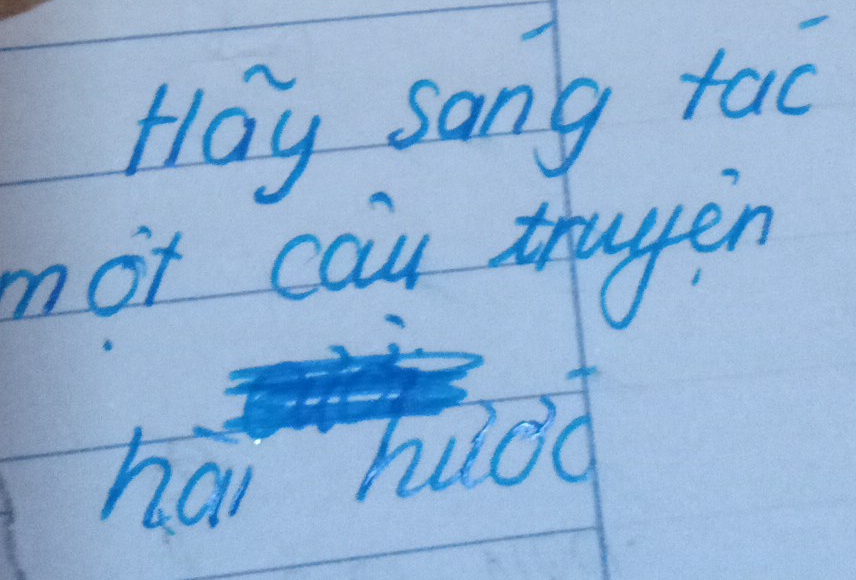 Hãy sáng tác
một câu truyện
hài hước